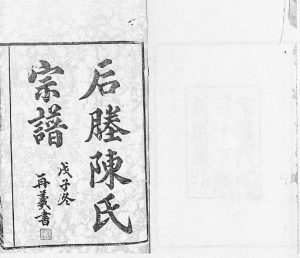 后塍陳氏
宗譜
戊子冬
再羲書